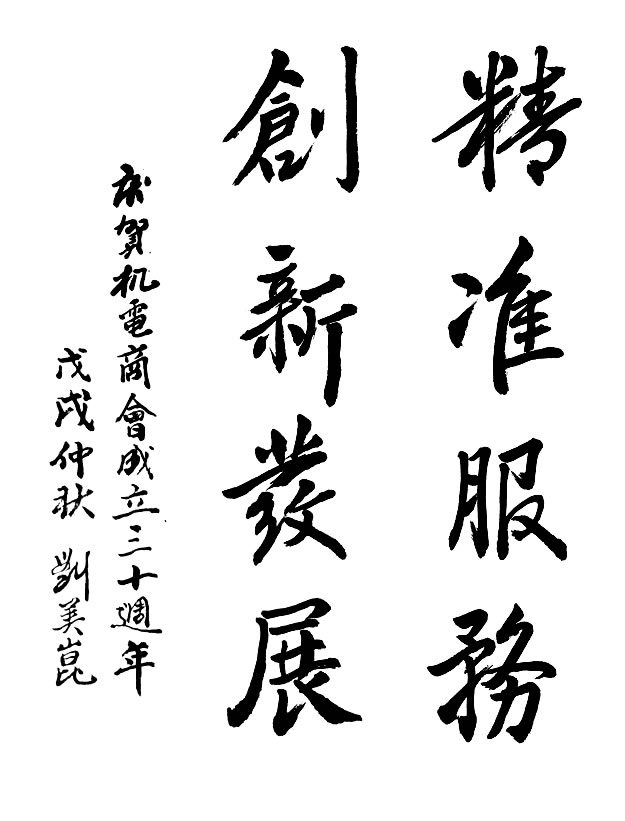 精准服務
創新發展
庆賀机電商會成立三十週年
戊戌仲秋 劉美崑